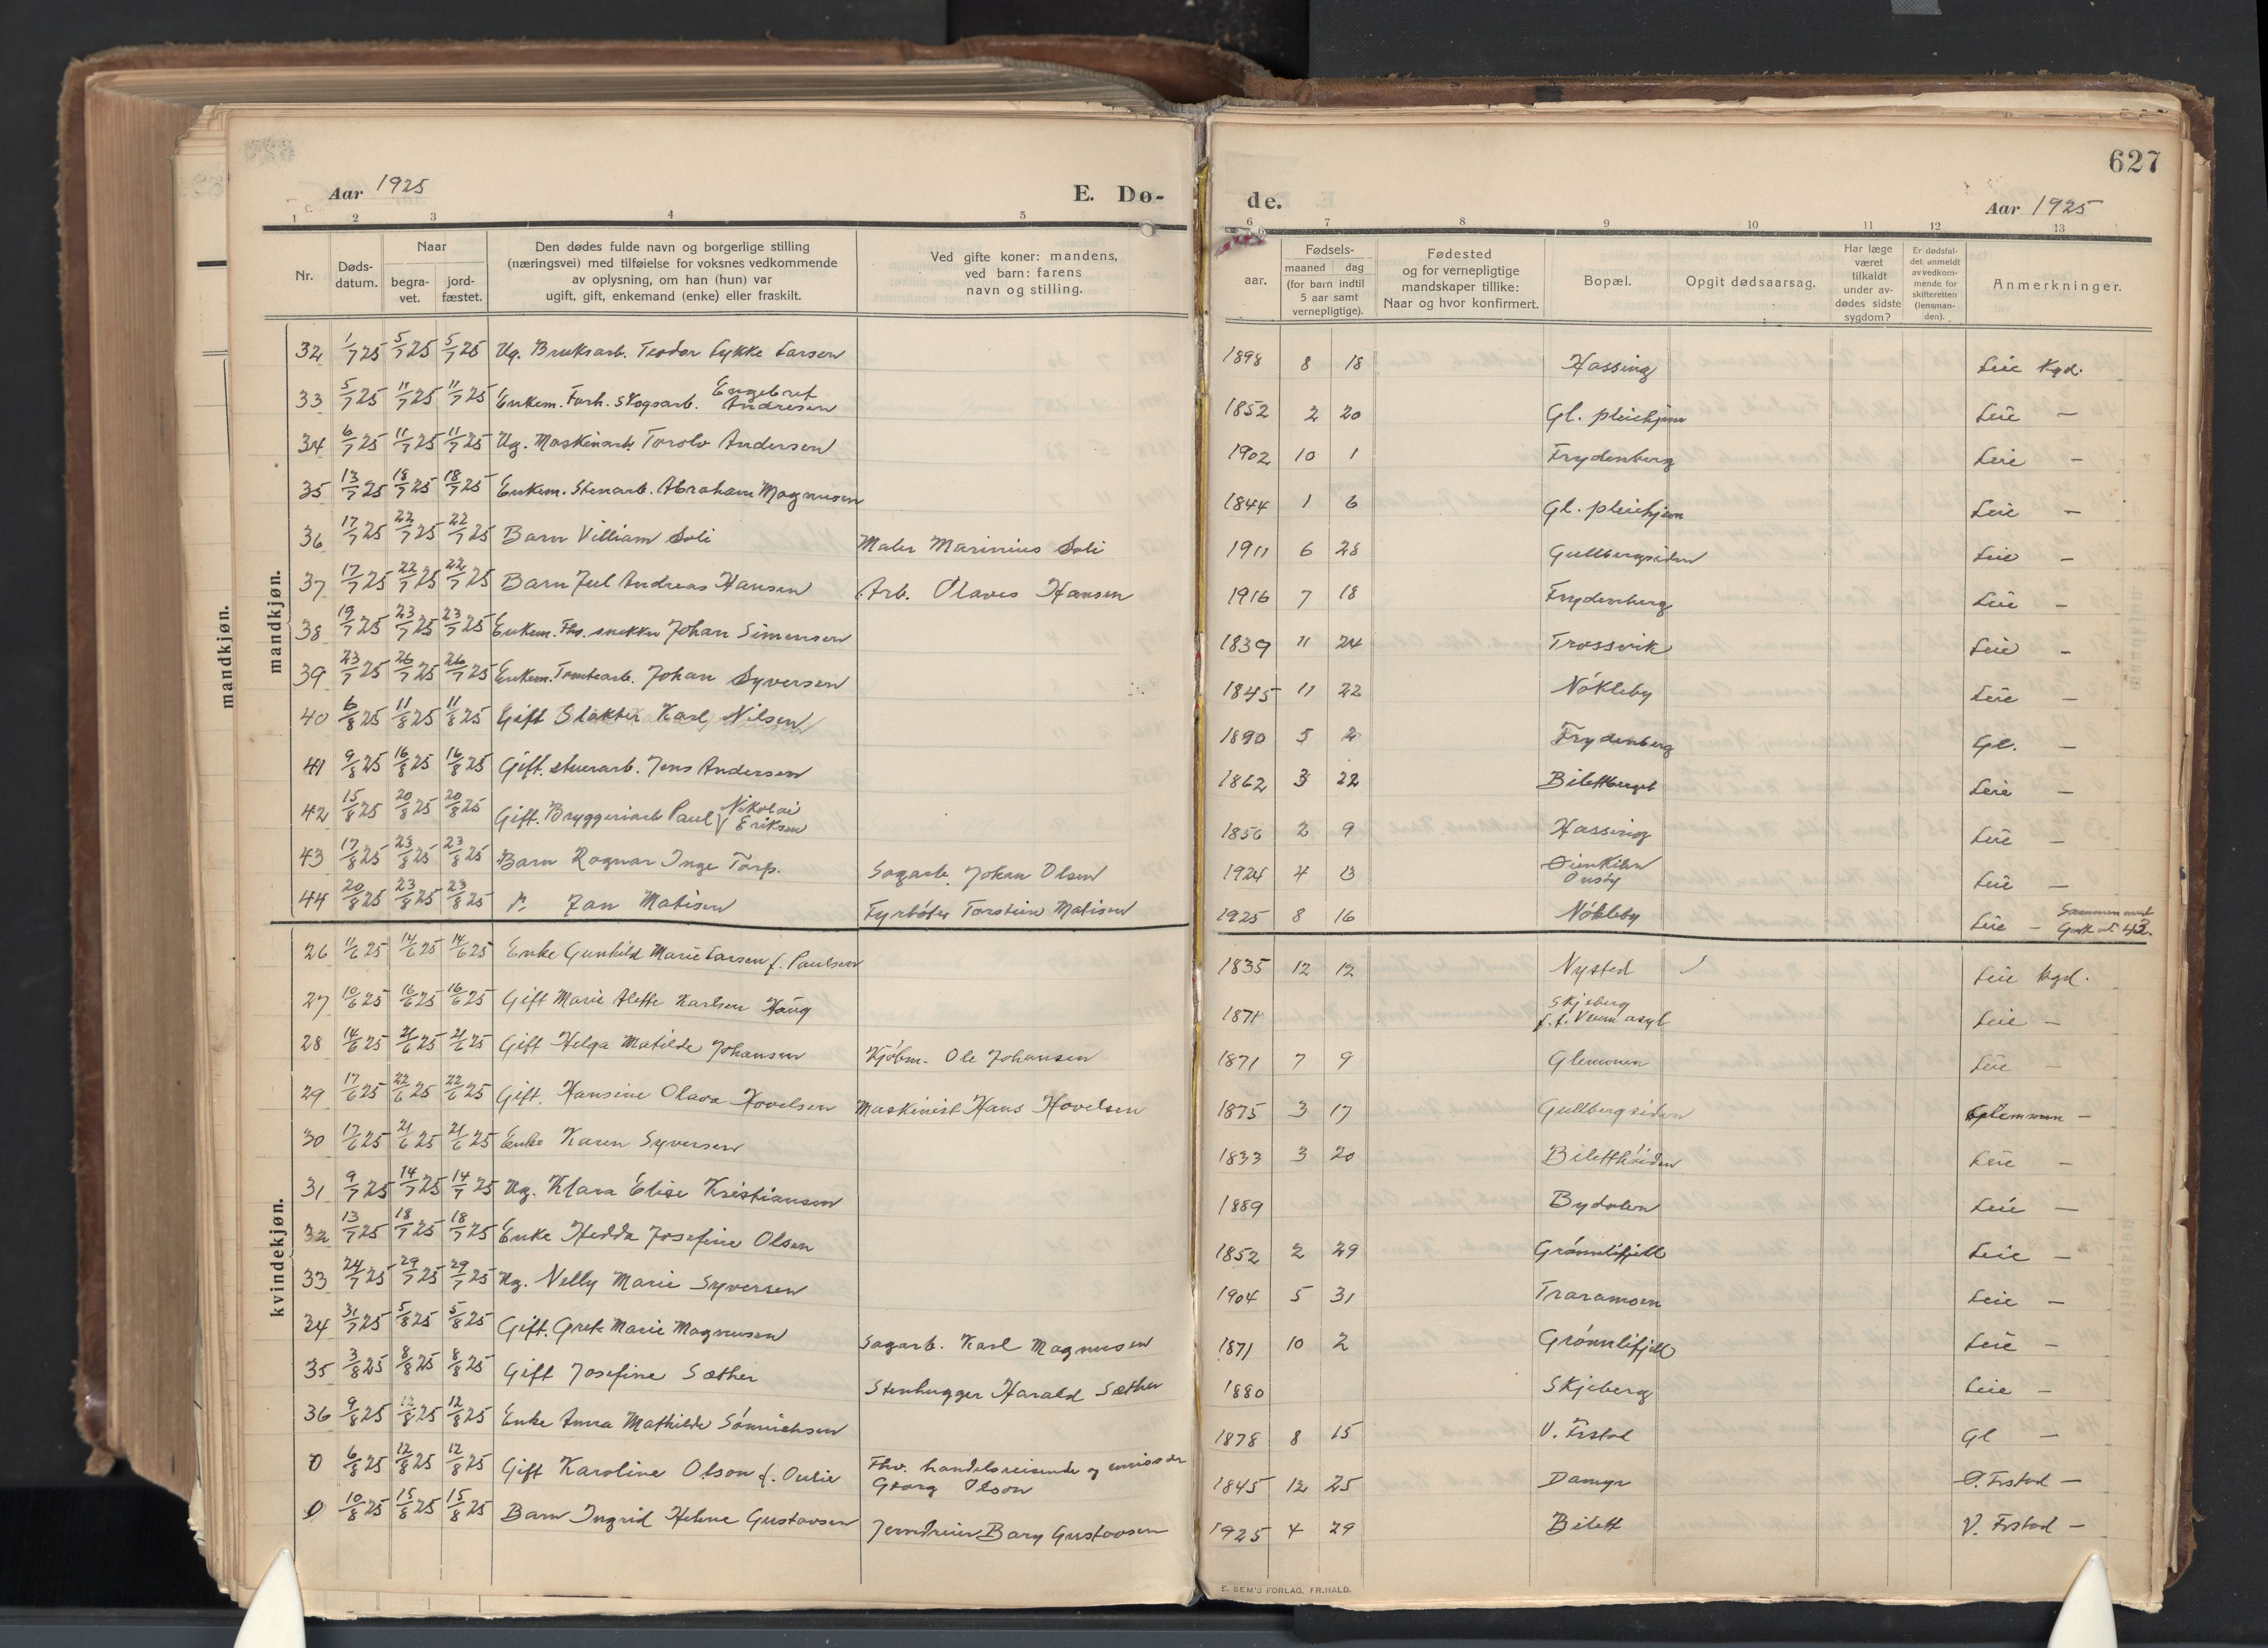 627
Aar 1925
E. Dø-
de.
Aar 1925
1 2 3 4 5 6 7 8 9 10 11 12 13
Nr.
Døds-
datum.
Naar
begra-
vet.
jord-
fæstet.
Den dødes fulde navn og borgerlige stilling
(næringsvei) med tilføielse for voksnes vedkommende
av oplysning, om han (hun) var
ugift, gift, enkemand (enke) eller fraskilt.
Ved gifte koner: mandens,
ved barn: farens
navn og stilling.
aar.
Fødsels-
maaned dag
(for barn indtil
5 aar samt
vernepligtige).
Fødested
og for vernepligtige
mandskaper tillike:
Naar og hvor konfirmert.
Bopæl.
Opgit dødsaarsag.
Har læge
været
tilkaldt
under av-
dødes sidste
sygdom?
Er dødsfal-
det anmeldt
av vedkom-
mende for
skifteretten
(lensman-
den).
Anmerkninger.
mandkjøn.
mandkjøn.
32 1/7 25 5/7 25 5/7 25 Ug. Bruksarb. Teodor Lykke Larsen 1898 8 18 Hassing Leie Kgd.
33 5/7 25 11/7 25 11/7 25 Enkem. Forh. Skogsarb. Engebret Andresen 1852 2 20 Gl. pleiehjem Leie —
34 6/7 25 11/7 25 11/7 25 Ug. Maskinarb. Torolv Andersen 1902 10 1 Frydenberg Leie —
35 13/7 25 18/7 25 18/7 25 Enkem. Stenarb. Abraham Magnusen 1844 1 6 Gl. pleiehjem Leie —
36 17/7 25 22/7 25 22/7 25 Barn Villiam Soli Maler Marinius Soli 1911 6 28 Gullbergsiden Leie —
37 17/7 25 22/7 25 22/7 25 Barn Juel Andreas Hansen Arb. Olaves Hansen 1916 7 18 Frydenberg Leie —
38 19/7 25 23/7 25 23/7 25 Enkem. Fhv. snekker Johan Simensen 1839 11 24 Trossvik Leie —
39 23/7 25 26/7 25 26/7 25 Enkem. Tomtearb. Johan Syversen 1845 11 22 Nökleby Leie —
40 6/8 25 11/8 25 11/8 25 Gift Slakter Karl Nilsen 1890 5 2 Frydenberg Gl. —
41 9/8 25 16/8 25 16/8 25 Gift. stuerarb. Jens Andersen 1862 3 22 Bilettberget Leie —
42 15/8 25 20/8 25 20/8 25 Gift. Bryggeriarb Paul Nikolai Eriksen 1856 2 9 Hassing Leie —
43 17/8 25 23/8 25 23/8 25 Barn Ragnar Inge Torp. Sagarb. Johan Olsen 1924 4 13 Oienkilen Onsöy Leie —
44 20/8 25 23/8 25 23/8 25 Jan Matisen Fyrböter Torstein Matisen 1925 8 16 Nökleby Leie — Sammen med 42.
kvindekjøn.
26 11/6 25 14/6 25 14/6 25 Enke Gunhild Marie Larsen f. Paulsen 1835 12 12 Nysted Leie kgd.
27 10/6 25 16/6 25 16/6 25 Gift Marie Alette Karlsen Haug 1871 Skjeberg f. t. Veum asyl Leie —
28 14/6 25 21/6 25 21/6 25 Gift Helga Matilde Johansen Kjöbm. Ole Johansen 1871 7 9 Glemmen Leie —
29 17/6 25 22/6 25 22/6 25 Gift. Hansine Olava Hovelsen Maskinist Hans Hovelsen 1875 3 17 Gullbergsiden Glemmen —
30 17/6 25 21/6 25 21/6 25 Enke Karen Syversen 1833 3 20 Biletthöiden Leie —
31 9/7 25 14/7 25 14/7 25 Ug. Klara Elise Kristiansen 1889 Bydalen Leie —
32 13/7 25 18/7 25 18/7 25 Enke Hedda Josefine Olsen 1852 2 29 Grönnlifjell Leie —
33 24/7 25 29/7 25 29/7 25 Ug. Nelly Marie Syversen 1904 5 31 Traramoen Leie —
34 31/7 25 5/8 25 5/8 25 Gift. Grete Marie Magnusen Sagarb. Karl Magnusen 1871 10 2 Grönnlifjell Leie —
35 3/8 25 8/8 25 8/8 25 Gift Josefine Sæther Stenhugger Harald Sæther 1880 Skjeberg Leie —
36 9/8 25 12/8 25 12/8 25 Enke Anna Mathilde Sönnichsen 1878 8 15 V. Frstad Gl —
0 6/8 25 12/8 25 12/8 25 Gift Karoline Olson f. Oulie Fhv. handelsreisende og Georg Olson 1845 12 25 Damyr O. Frstad —
0 10/8 25 15/8 25 15/8 25 Barn Ingrid Helene Gustavsen Jerndreier Barg Gustavsen 1925 4 29 Bilett V. Frstad —
E. SEM'S FORLAG, FR.HALD.